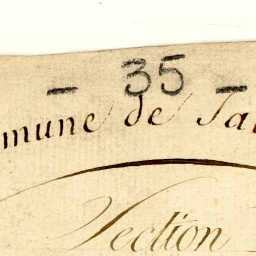 - 35 -
mune de Ta
Section